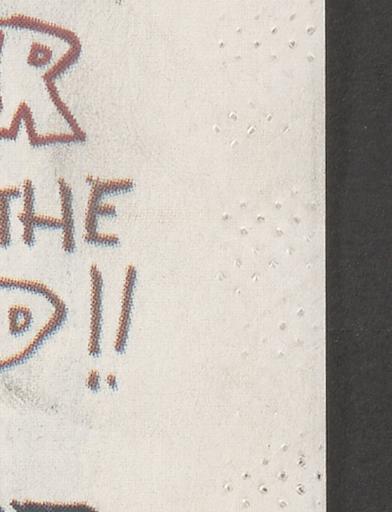 R
THE
D!!